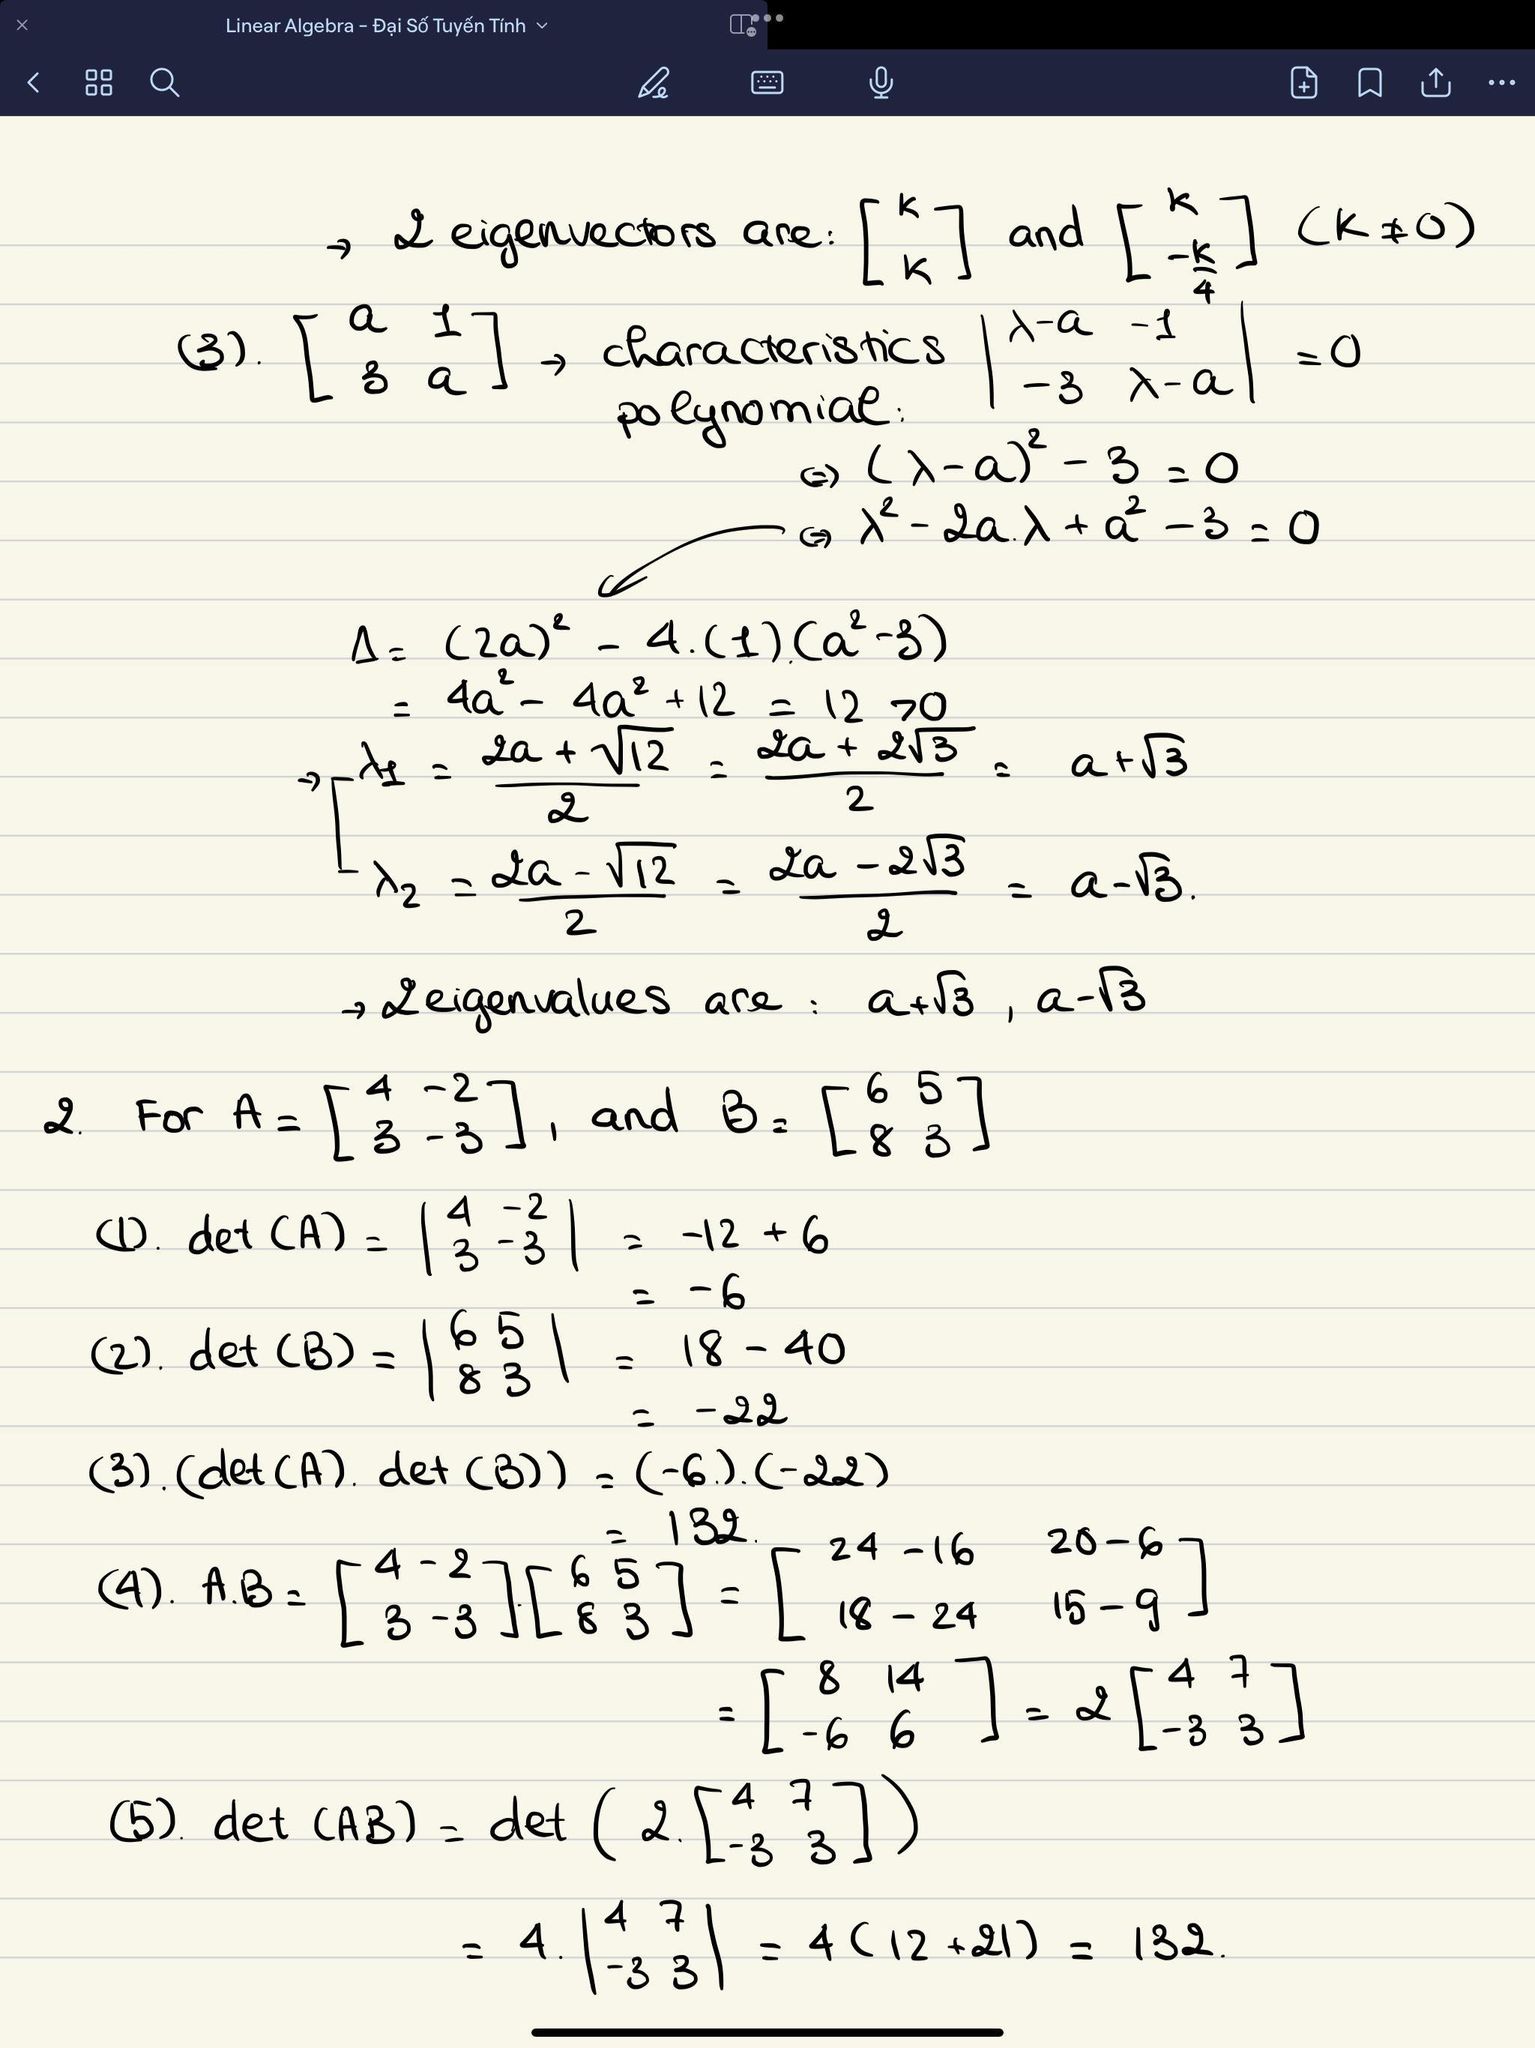 Linear Algebra - Đại Số Tuyến Tính
→ 2 eigenvectors are: [k; k] and [k; -k/4] (k ≠ 0)
(3). [a 1; 3 a] → characteristics polynomial: |λ-a -1; -3 λ-a| = 0
⇔ (λ-a)² - 3 = 0
⇔ λ² - 2a.λ + a² - 3 = 0
Δ = (2a)² - 4.(1).(a²-3)
= 4a² - 4a² + 12 = 12 > 0
→ λ1 = (2a + √12)/2 = (2a + 2√3)/2 = a + √3
λ2 = (2a - √12)/2 = (2a - 2√3)/2 = a - √3.
→ 2 eigenvalues are: a+√3, a-√3
2. For A = [4 -2; 3 -3], and B = [6 5; 8 3]
(1). det (A) = |4 -2; 3 -3| = -12 + 6
= -6
(2). det (B) = |6 5; 8 3| = 18 - 40
= -22
(3). (det(A). det(B)) = (-6).(-22)
= 132.
(4). A.B = [4 -2; 3 -3].[6 5; 8 3] = [24-16 20-6; 18-24 15-9]
= [8 14; -6 6] = 2 [4 7; -3 3]
(5). det (AB) = det (2.[4 7; -3 3])
= 4.|4 7; -3 3| = 4(12+21) = 132.